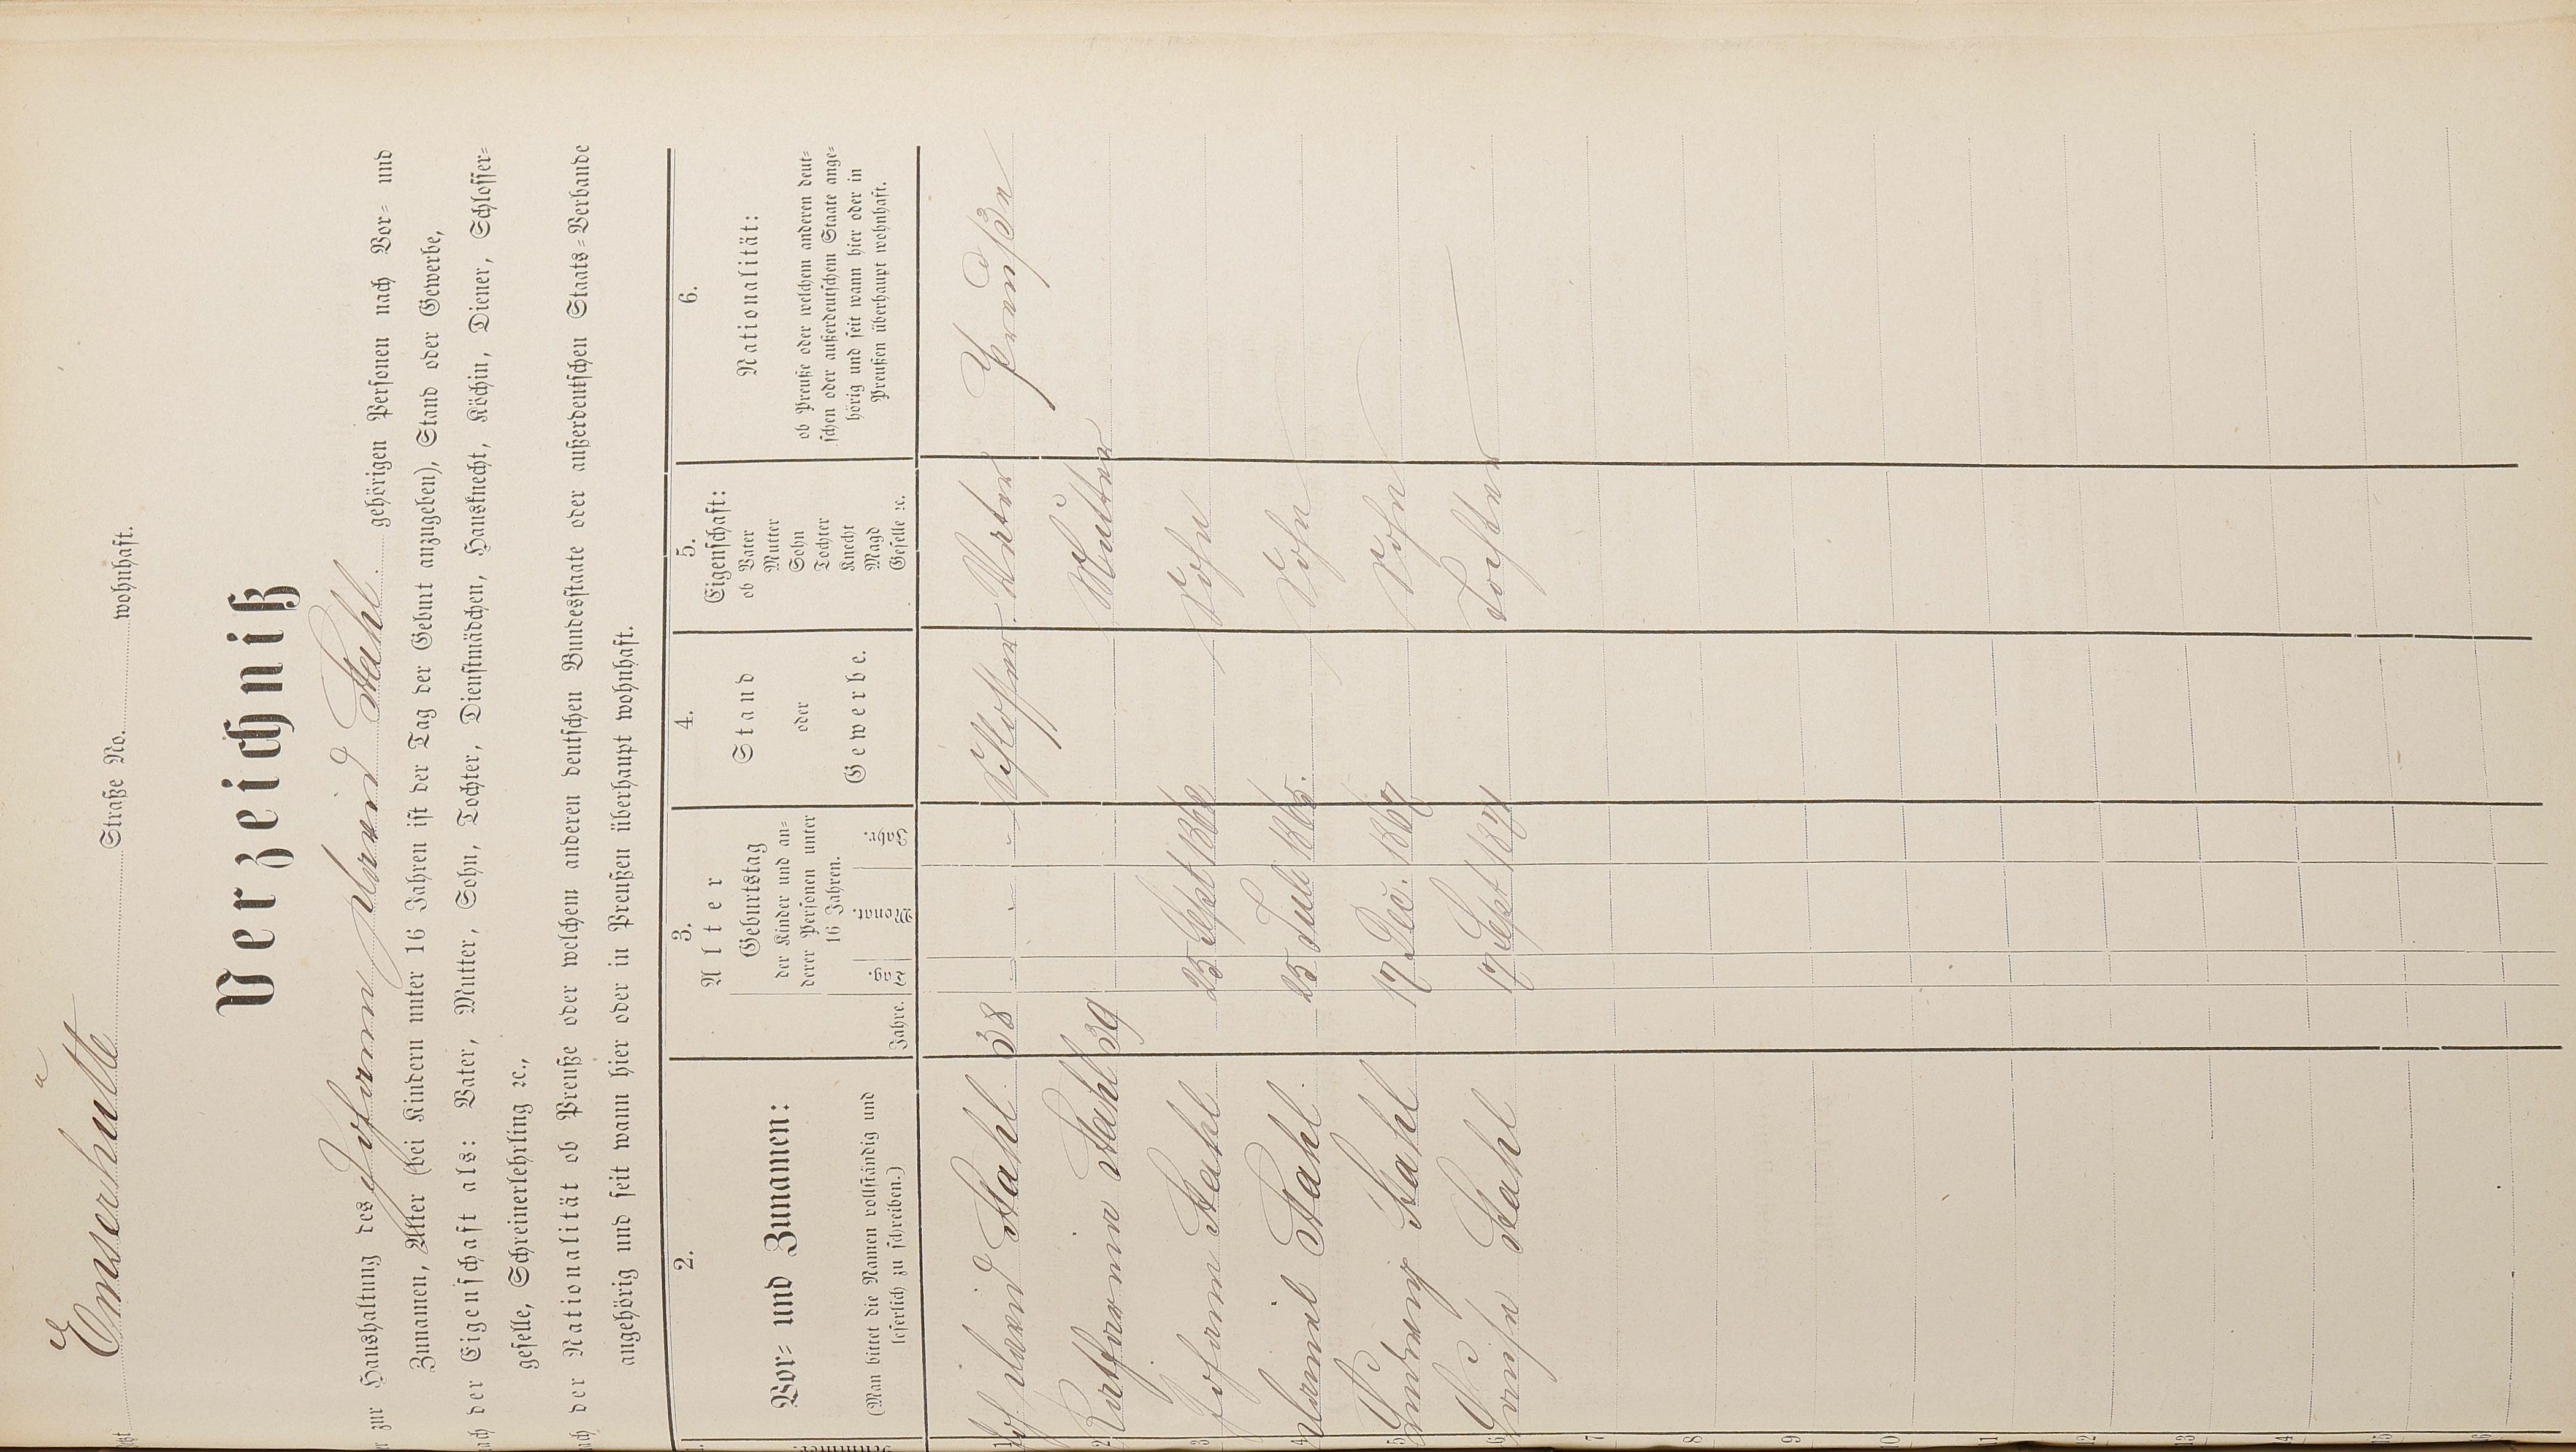 Emserhütte Straße No. wohnhaft.
Verzeichniß
zur Haushaltung des Johann David Stahl gehörigen Personen nach Vor- und
Zunamen, Alter (bei Kindern unter 16 Jahren ist der Tag der Geburt anzugeben), Stand oder Gewerbe,
der Eigenschaft als: Vater, Mutter, Sohn, Tochter, Dienstmädchen, Hausknecht, Köchin, Diener, Schlosser-
geselle, Schreinerlehrling ꝛc.,
der Nationalität ob Preuße oder welchem anderen deutschen Bundesstaate oder außerdeutschen Staats-Verbande
angehörig und seit wann hier oder in Preußen überhaupt wohnhaft.
2. 3. 4. 5. 6.
Vor- und Zunamen:
(Man bittet die Namen vollständig und
leserlich zu schreiben.)
Alter
Jahre.
Geburtstag
der Kinder und an-
derer Personen unter
16 Jahren.
Tag. Monat. Jahr.
Stand
oder
Gewerbe.
Eigenschaft:
ob Vater
Mutter
Sohn
Tochter
Knecht
Magd
Geselle ꝛc.
Nationalität:
ob Preuße oder welchem anderen deut-
schen oder außerdeutschem Staate ange-
hörig und seit wann hier oder in
Preußen überhaupt wohnhaft.
1 Joh David Stahl 38 - - - Schlosser Vater Preuße
2 Katharina Stahl 39 Mutter
3 Johann Stahl 25 Sept 1862 Sohn
4 Daniel Stahl 25 Juli 1865. Sohn
5 Ludwig Stahl 17 Dec. 1867 Sohn
6 Louise Stahl 17 Sept 1871 Tochter
7
8
9
10
11
12
13
14
15
16